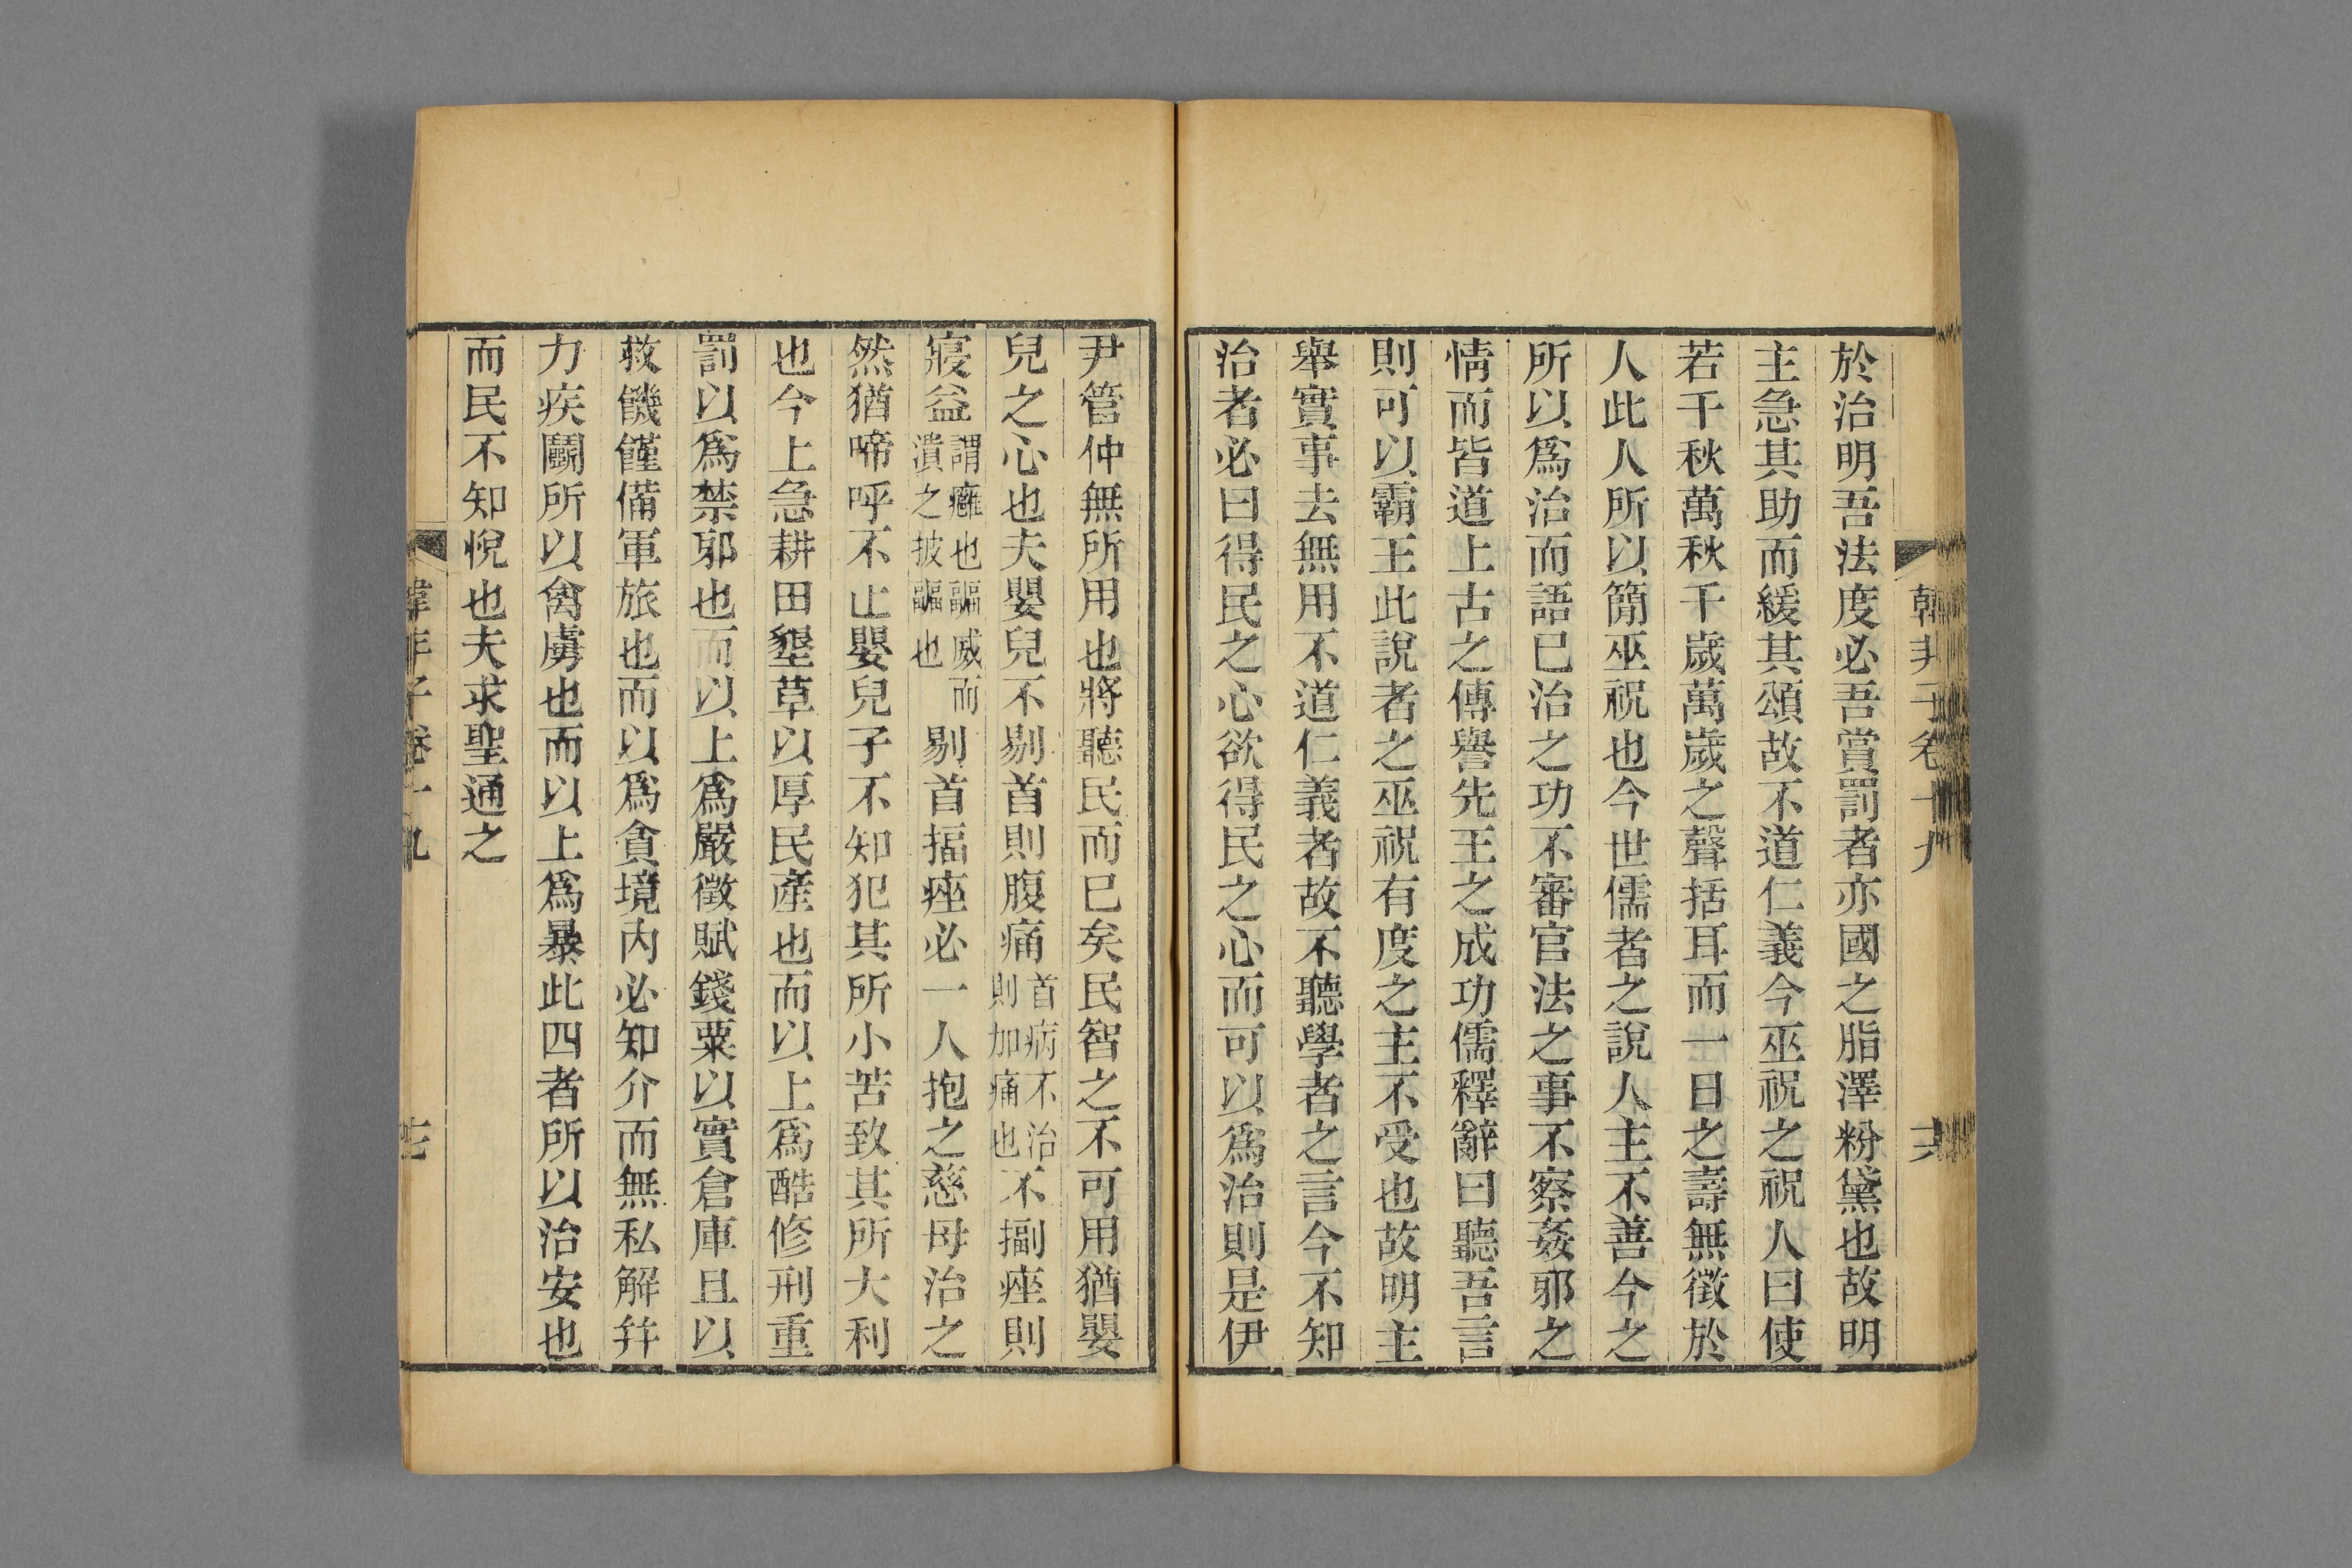 韓非子卷十九
於治明吾法度必吾賞罰者亦國之脂澤粉黛也故明
主急其助而緩其頌故不道仁義今巫祝之祝人曰使
若千秋萬秋千歲萬歲之聲括耳而一日之壽無徵於
人此人所以簡巫祝也今世儒者之說人主不善今之
所以爲治而語已治之功不審官法之事不察姦邪之
情而皆道上古之傳譽先王之成功儒釋辭曰聽吾言
則可以霸王此說者之巫祝有度之主不受也故明主
舉實事去無用不道仁義者故不聽學者之言今不知
治者必曰得民之心欲得民之心而可以爲治則是伊
尹管仲無所用也將聽民而已矣民智之不可用猶嬰
兒之心也夫嬰兒不剔首則腹痛首病不治則加痛也不揊痤則
寖益謂癰也謳威而潰之披謳也剔首揊痤必一人抱之慈母治之
然猶啼呼不止嬰兒子不知犯其所小苦致其所大利
也今上急耕田墾草以厚民產也而以上爲酷修刑重
罰以爲禁邪也而以上爲嚴徵賦錢粟以實倉庫且以
救饑饉備軍旅也而以爲貪境內必知介而無私解并
力疾鬭所以禽虜也而以上爲暴此四者所以治安也
而民不知悅也夫求聖通之
韓非子卷十九